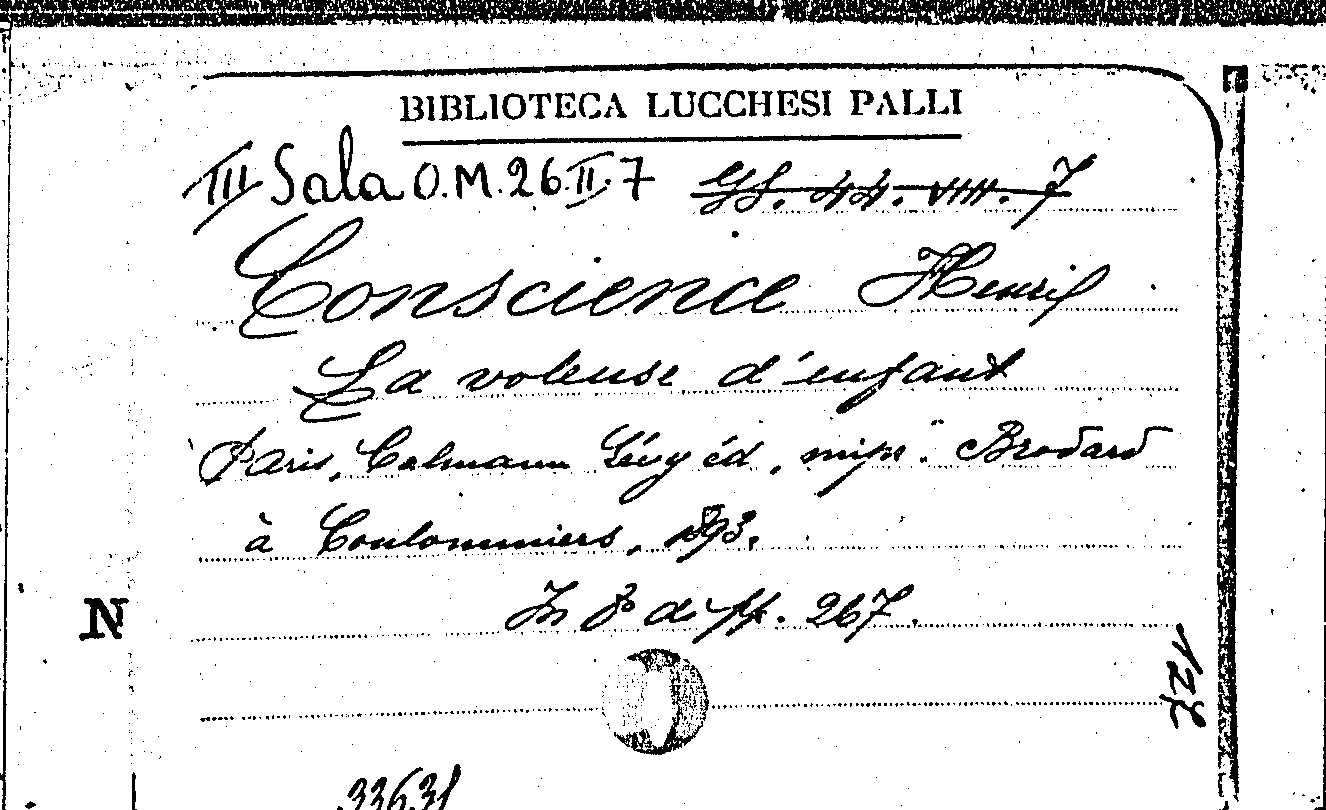 BIBLIOTECA LUCCHESI PALLI
III Sala O.M.26.II.7 44. VIII. 7
Conscience Henri
La voleuse d'enfant
Paris, Calmann Lévy éd, Brodard
à Coulommiers, 1893.
In 8° di pp. 267.
N
33631